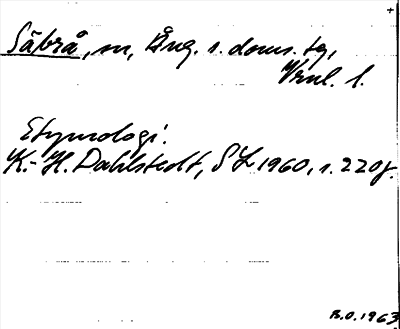 Säbrå, sn, Ång. s. doms. tg,
Vrnl. l.
Etymologi.
K.-H. Dahlstedt, SL 1960, s. 220f.
B.O. 1963